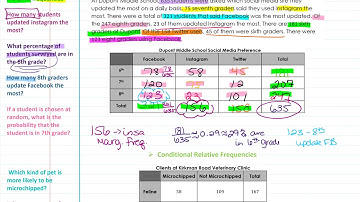 At Dupont Middle School 635 students were asked which social media site they
updated the most on a daily basis. 75 seventh graders said they used Instagram the
most. There were a total of 321 students that said Facebook was the most updated. Of
the 247 eighth graders, 23 of them updated Instagram the most. There are
graders at Dupont. Of the 158 Twitter uses, 45 of them were sixth graders. There were
123 eight graders using Facebook.
How many students
updated Instagram the
most?
What percentage of
students surveyed are in
the 6th grade?
How many 8th graders
update Facebook the
most?
If a student is chosen at
random, what is the
probability that the
student is in 7th grade?
Which kind of pet is
more likely to be
microchipped?
Dupont Middle School Social Media Preference
Facebook Instagram Twitter Total
6th 78 58 45
7th 120 12 207
8th 123 23
Total 156 635
156 → insta
Marg. freq.
181/635 ≈ 0.29 ≈ 29% are
in 6th grade
123 - 8th
update FB
➤ Conditional Relative Frequencies
Clients of Kirkman Road Veterinary Clinic
Microchipped Not Microchipped Total
Feline 58 109 167